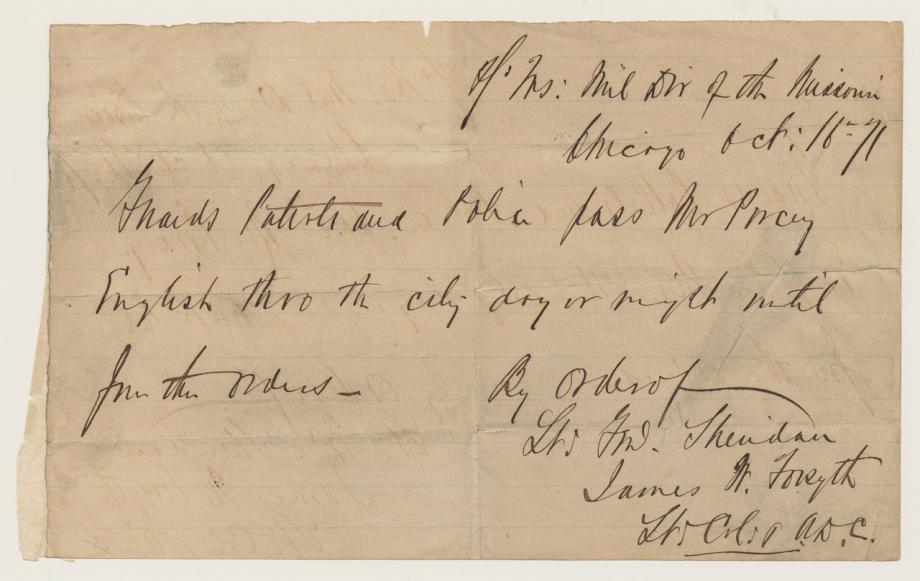 Hd Qrs: Mil Div of the Missouri
Chicago Oct: 16th 71
Guards Patrols and Police pass Mr Porcey
English thro the city day or night until
further orders —
By order of
Lt: Genl. Sheridan
James W. Forsyth
Lt: Col: & A.D.C.